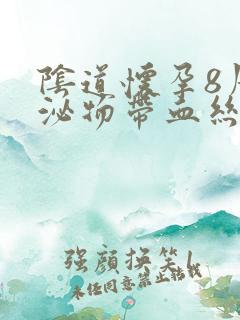 陰道懷孕8
泌物帶血絲
强顏換笑
未经同意禁止转载